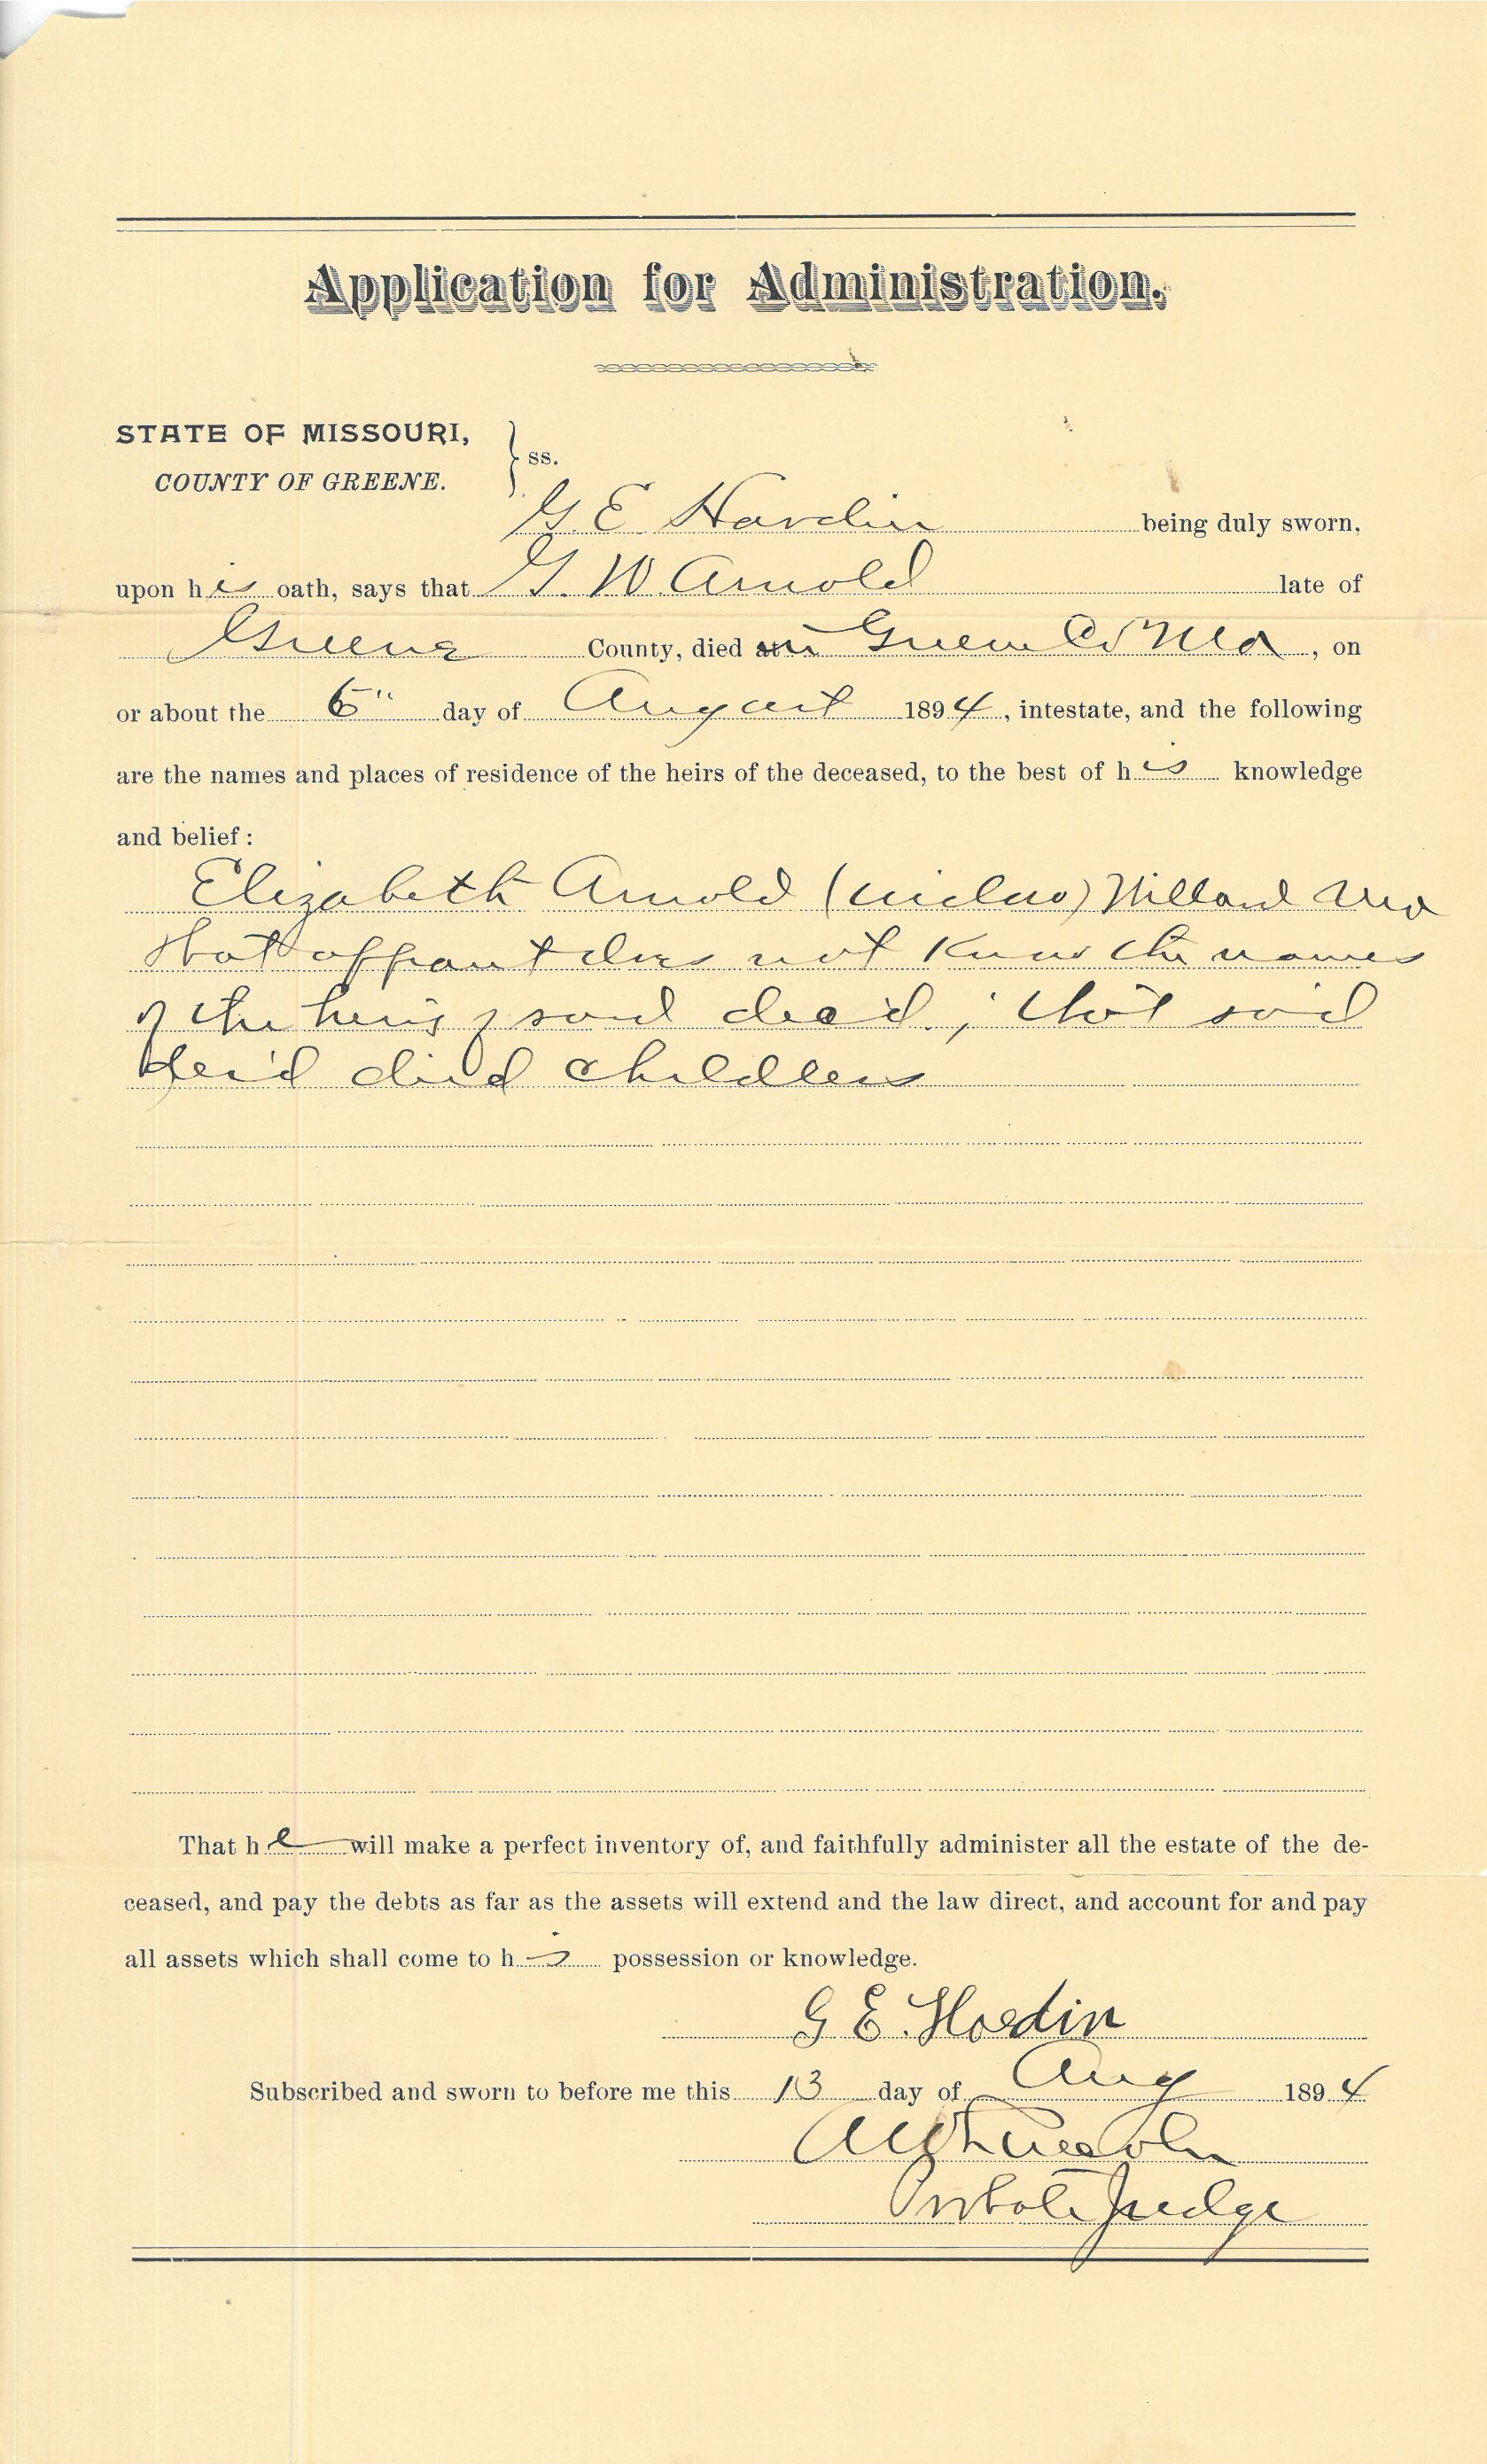 Application for Administration.
STATE OF MISSOURI,
COUNTY OF GREENE.
ss.
G. E. Hardin being duly sworn,
upon his oath, says that G. W. Arnold late of
Greene County, died in Greene Co Mo, on
or about the 6" day of August 1894, intestate, and the following
are the names and places of residence of the heirs of the deceased, to the best of his knowledge
and belief:
Elizabeth Arnold (widow) Willard Mo
that affiant does not know the names
of the heirs of said dec'd; that said
dec'd died childless
That he will make a perfect inventory of, and faithfully administer all the estate of the de-
ceased, and pay the debts as far as the assets will extend and the law direct, and account for and pay
all assets which shall come to his possession or knowledge.
G E. Hardin
Subscribed and sworn to before me this 13 day of Aug 1894
Probate Judge